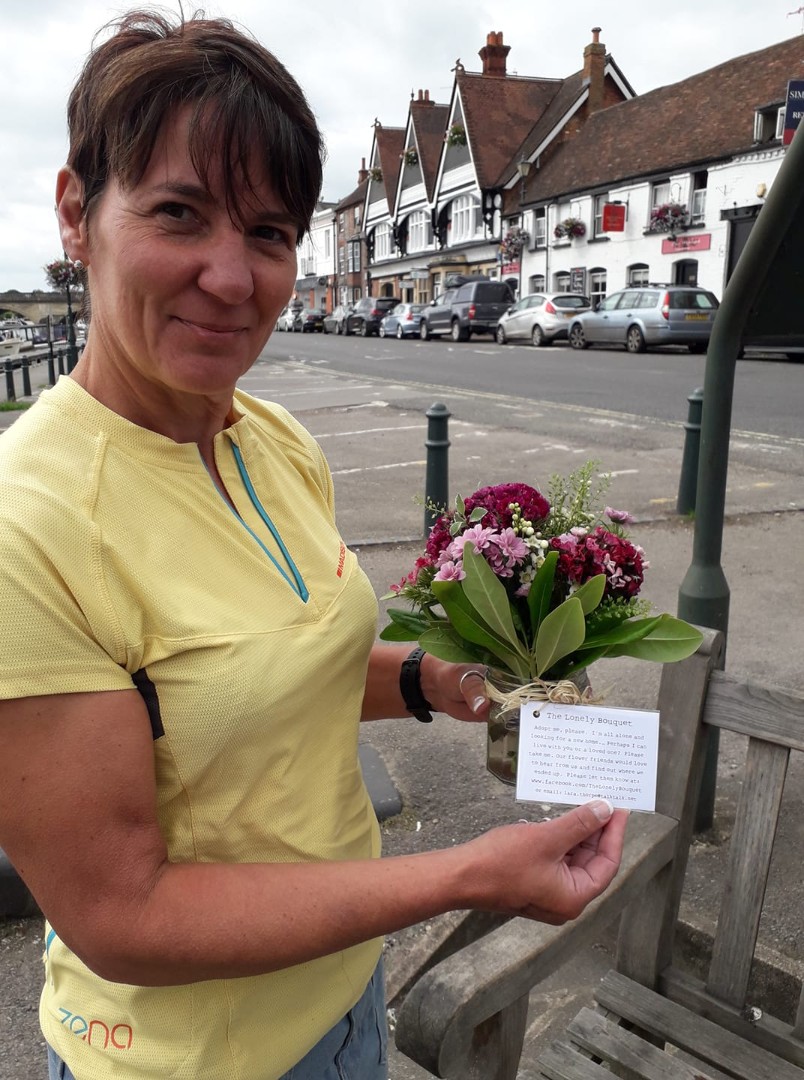 SIM
RE
MADISON
The Lonely Bouquet
Adopt me, please. I'm all alone and
looking for a new home... Perhaps I can
live with you or a loved one? Please
take me, our flower friends would love
to hear from us and find out where we
ended up. Please let them know at:
www.facebook.com/TheLonelyBouquet
or email:
zena